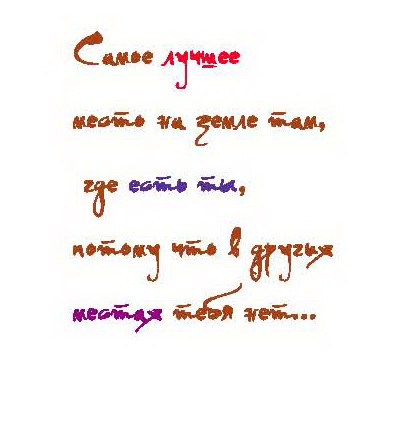 Самое лучшее
место на земле там,
где есть ты,
потому что в других
местах тебя нет...